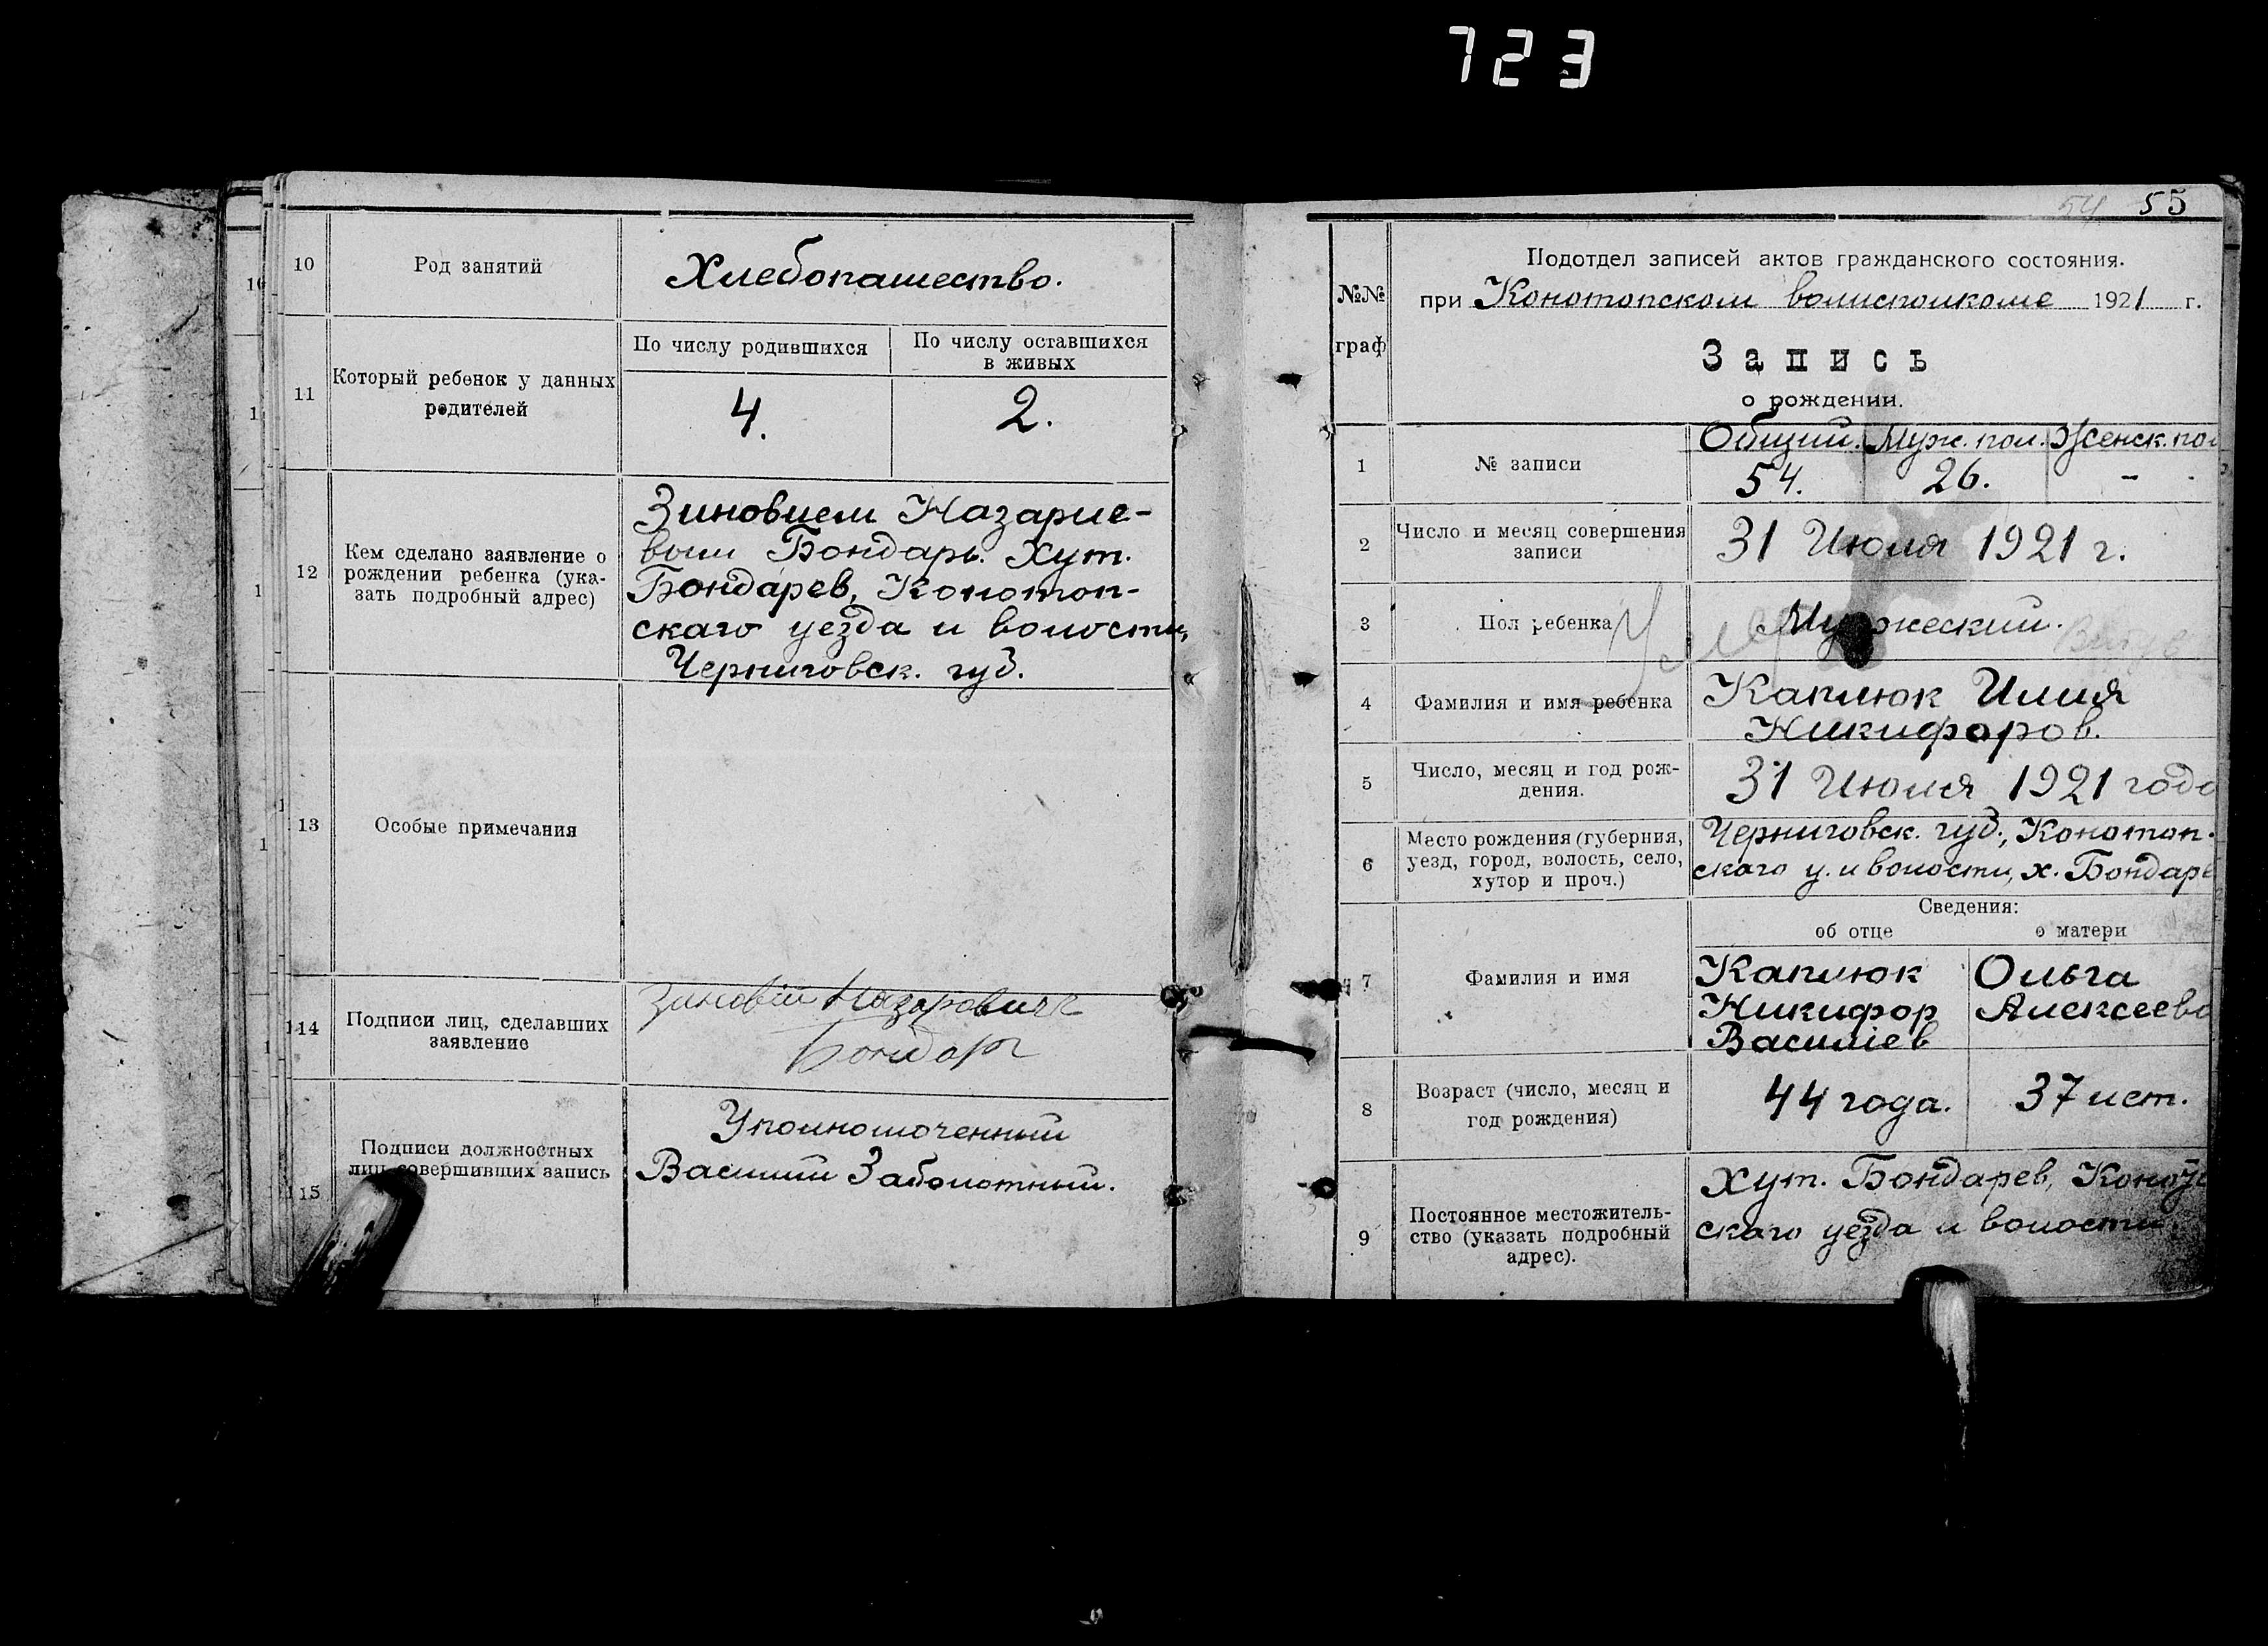 723
10
Род занятий
Хлебопашество.
11
Который ребенок у данных
родителей
По числу родившихся
По числу оставшихся
в живых
4.
2.
12
Кем сделано заявление о
рождении ребенка (ука-
зать подробный адрес)
Зиновием Назарие-
вым Бондарь. Хут.
Бондарев, Конотоп-
скаго уезда и волости,
Черниговск. губ.
13
Особые примечания
14
Подписи лиц, сделавших
заявление
Зиновій Назарович
Бондарь
15
Подписи должностных
лиц совершивших запись
Уполномоченный
Василий Заболотный.
54 55
№№
граф
Подотдел записей актов гражданского состояния.
при Конотопском волисполкоме 1921 г.
Запись
о рождении.
1
№ записи
Общий. Муж. пол. Женск. пол
54. 26. -
2
Число и месяц совершения
записи
31 Июля 1921 г.
3
Пол ребенка
Мужеский.
4
Фамилия и имя ребенка
Каплюк Илия
Никифоров.
5
Число, месяц и год рож-
дения.
31 Июля 1921 года
6
Место рождения (губерния,
уезд, город, волость, село,
хутор и проч.)
Черниговск. губ., Конотоп-
скаго у. и волости, х. Бондаре
Сведения:
об отце
о матери
7
Фамилия и имя
Каплюк
Никифор
Василіев
Ольга
Алексеева
8
Возраст (число, месяц и
год рождения)
44 года.
37 лет.
9
Постоянное местожитель-
ство (указать подробный
адрес).
Хут. Бондарев, Коното
скаго уезда и волости.